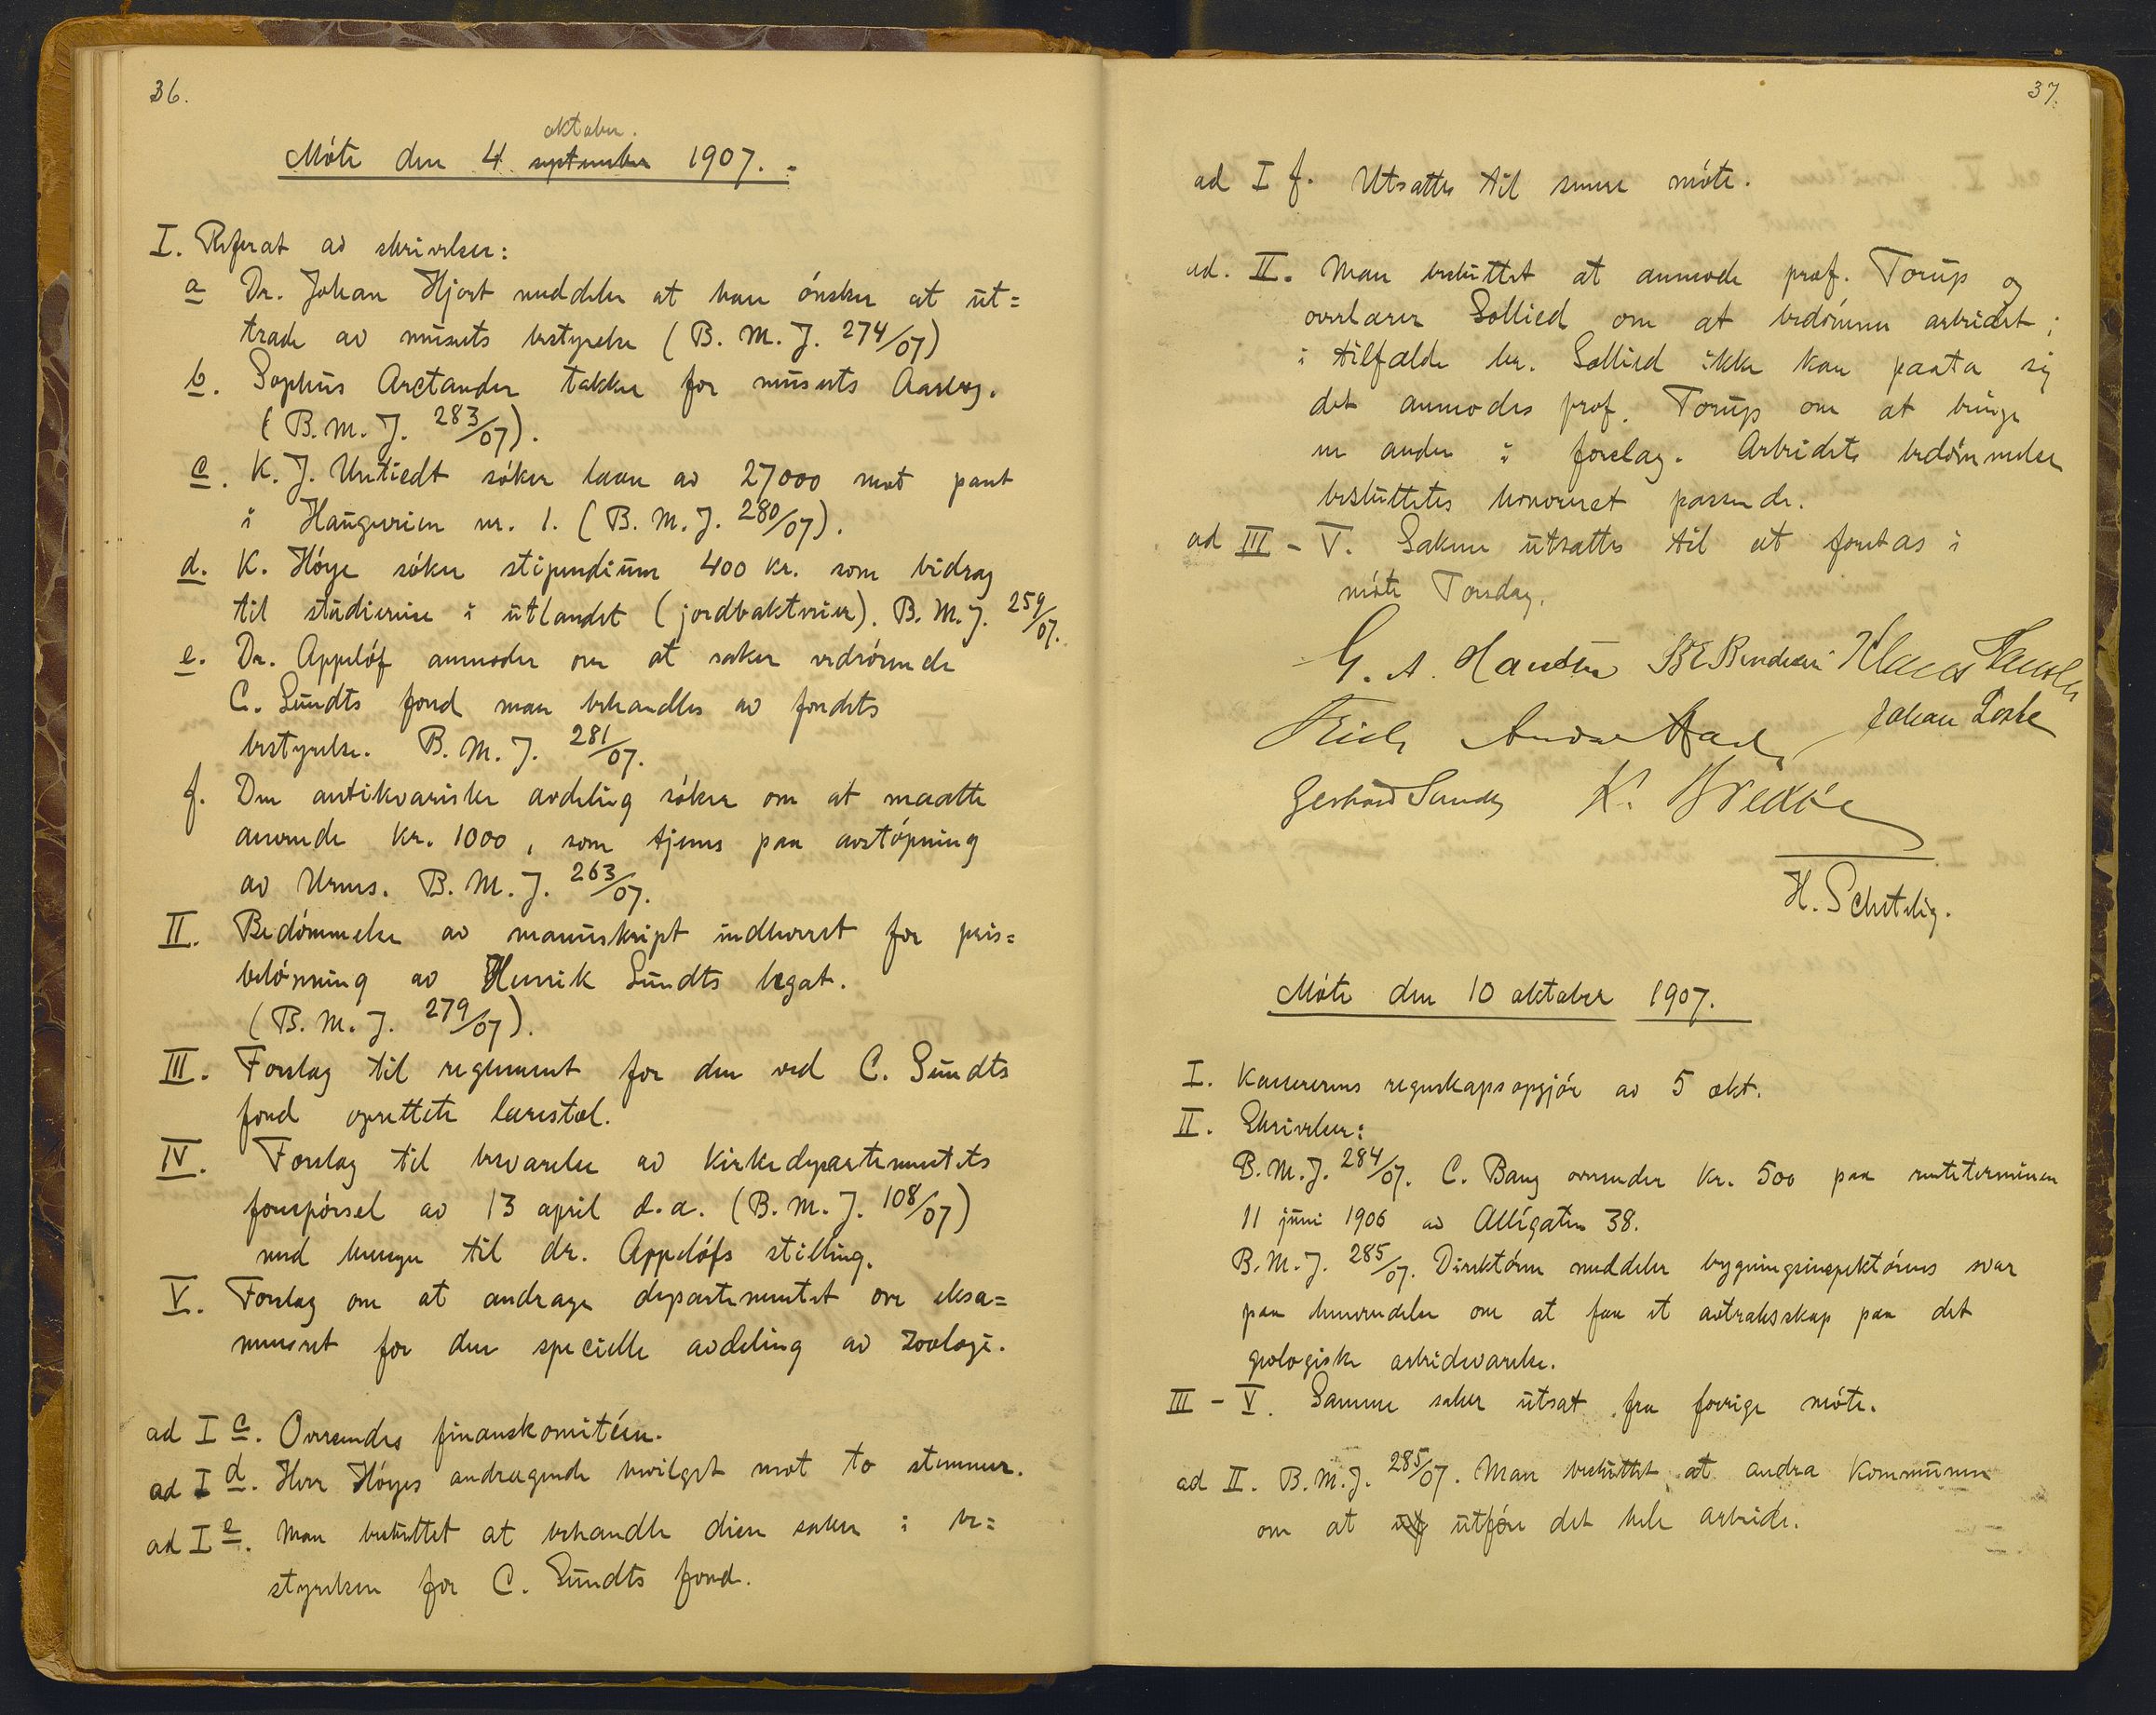 36.
oktober.
Møte den 4 september 1907.
I. Referat av skrivelser:
a Dr. Johan Hjort meddeler at han ønsker at ut=
træde av museets bestyrelse (B. M. J. 274/07)
b. Sophus Arctander takker for museets Aarbog.
(B. M. J. 283/07).
c. K. J. Untiedt søker laan av 27000 mot pant
i Haugerien nr. 1. (B. M. J. 280/07).
d. K. Høye søker stipendium 400 kr. som bidrag
til studiereise i utlandet (jordbakterier). B. M. J. 259/07.
e. Dr. Appeløf anmoder om at saker vedrørende
C. Sundts fond maa behandles av fondets
bestyrelse. B. M. J. 281/07.
f. Den antikvariske avdeling søker om at maatte
anvende kr. 1000, som tjenes paa avstøpning
av Urnes. B. M. J. 263/07.
II. Bedømmelse av manuskript indleveret for pris=
belønning av Henrik Sundts legat.
(B. M. J. 279/07).
III. Forslag til reglement for den ved C. Sundts
fond oprettete lærestol.
IV. Forslag til besvarelse av kirkedepartementets
forespørsel av 13 april d.a. (B. M. J. 108/07)
med hensyn til dr. Appeløfs stilling.
V. Forslag om at andrage departementet om eksa=
mensret for den specielle avdeling av zoologi.
ad I c. Oversendes finanskomitéen.
ad I d. Herr Høyes andragende bevilget mot to stemmer.
ad I e. Man besluttet at behandle disse saker i be=
styrelsen for C. Sundts fond.
37.
ad I f. Utsattes til senere møte.
ad. II. Man besluttet at anmode prof. Torup og
overlærer Sollied om at bedømme arbeidet;
i tilfælde hr. Sollied ikke kan paata sig
det anmodes prof. Torup om at bringe
en anden i forslag. Arbeidets bedømmelse
besluttetes honoreret passende.
ad III - V. Sakene utsattes til at foretas i
møte Torsdag.
G. A. Hansen B E Bendixen Klaus Hanssen
Friele Johan Lothe
Gerhard Sundt K. Bredöe
H. Schetelig.
Møte den 10 oktober 1907.
I. Kassererens regnskapsopgjør av 5 okt.
II. Skrivelser:
B. M. J. 284/07. C. Bang oversender kr. 500 paa renteterminen
11 juni 1906 av Alligaten 38.
B. M. J. 285/07. Direktøren meddeler bygningsinspektørens svar
paa henvendelse om at faa et avtræksskap paa det
geologiske arbeidsværelse.
III - V. Samme saker utsat fra forrige møte.
ad II. B. M. J. 285/07. Man besluttet at andra kommunen
om at utføre det hele arbeide.